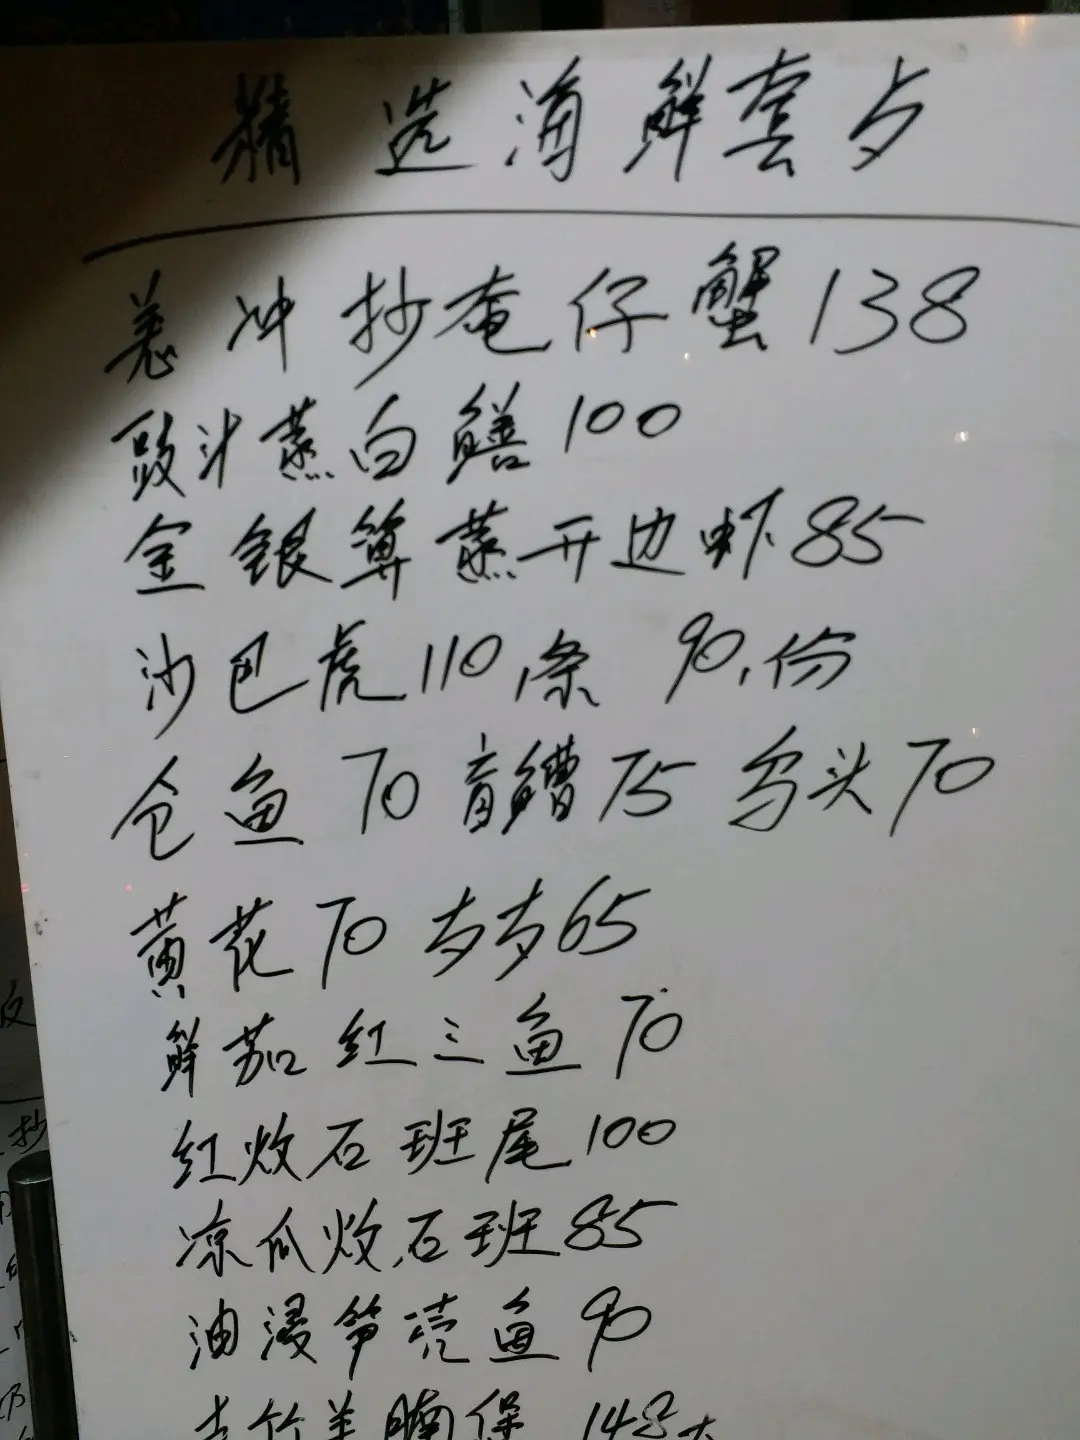 精选海鲜套歺
羌冲抄奄仔蟹138
豉汁蒸白鳝100
金银算蒸开边虾85
沙巴虎110,条 90,份
仓鱼70 盲鰽75 乌头70
黄花70 歺歺65
鲜茄红三鱼70
红炆石班尾100
凉瓜炆石班85
油浸笋壳鱼90
支竹羊腩保 148大